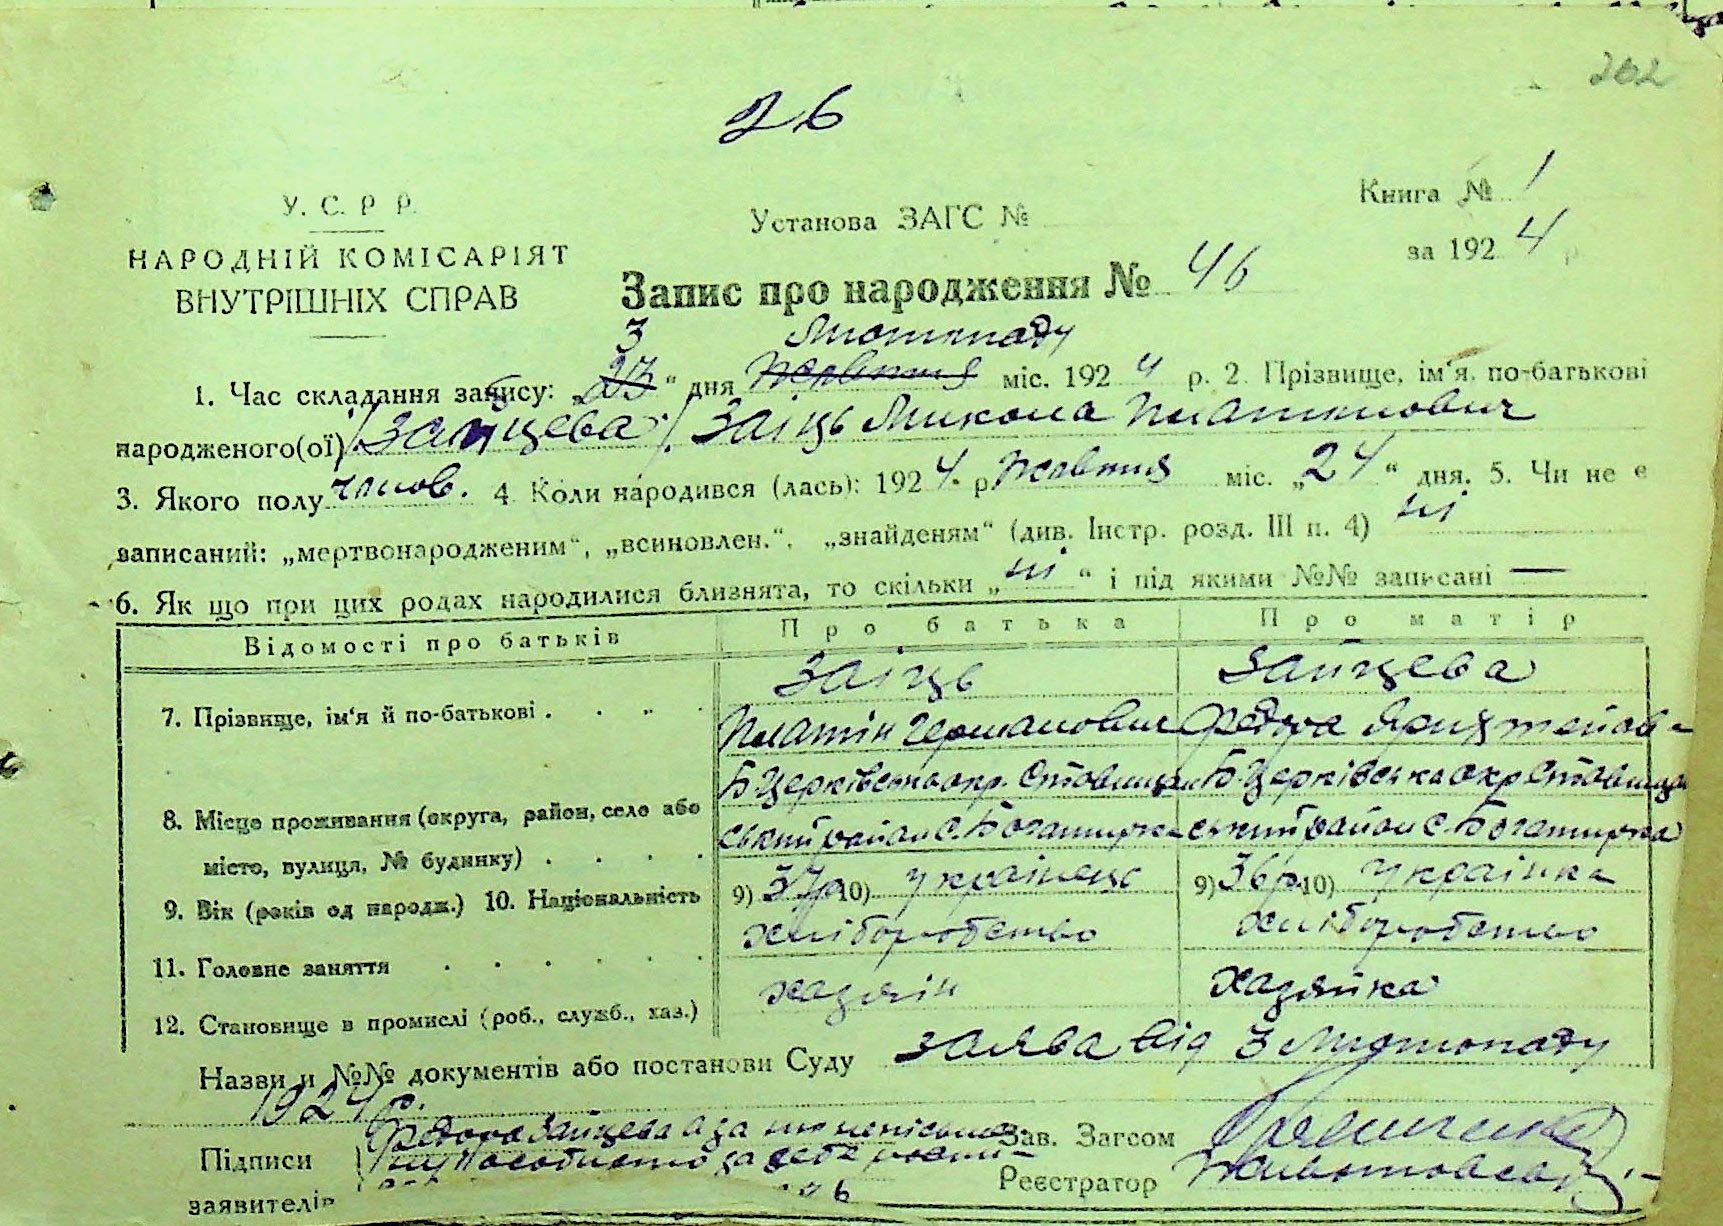 262
26
У. С. Р Р.
НАРОДНІЙ КОМІСАРІЯТ
ВНУТРІШНІХ СПРАВ
Установа ЗАГС №
Книга № 1
за 1924 р
Запис про народження № 46
3 Листопаду
1. Час складання запису: „23“ дня Жовтня міс. 1924 р. 2. Прізвище, ім‘я, по-батькові
народженого(ої) /Зайцева/ Заіць Микола Платинович
3. Якого полу чолов. 4. Коли народився (лась): 1924 р. Жовтня міс. „24“ дня. 5. Чи не є
записаний: „мертвонародженим“, „всиновлен.“, „знайденям“ (див. Інстр. розд. III п. 4) ні
6. Як що при цих родах народилися близнята, то скільки „ні“ і під якими №№ записані —
Відомості про батьків Про батька Про матір
Заіць Зайцева
7. Прізвище, ім‘я й по-батькові . . „ . Платін Германович Федора
Б Церківська окр. Ставищан Б-Церківська окр Ставищан
8. Місце проживання (округа, район, село або ський район с. Богатирка ський район с. Богатирка
місто, вулиця, № будинку) . . . .
9. Вік (років од народж.) 10. Національність 9) 37р 10) Українець 9) 36р. 10) Українка
11. Головне заняття . . . . . . хліборобство хліборобство
12. Становище в промислі (роб., служб., хаз.) хазяін хазяйка
Назви и №№ документів або постановн Суду заява від 3 Листопаду
1924 р.
Підписи Федора Зайцева а за
заявителів особисто за себе
Зав. Загсом
Реєстратор